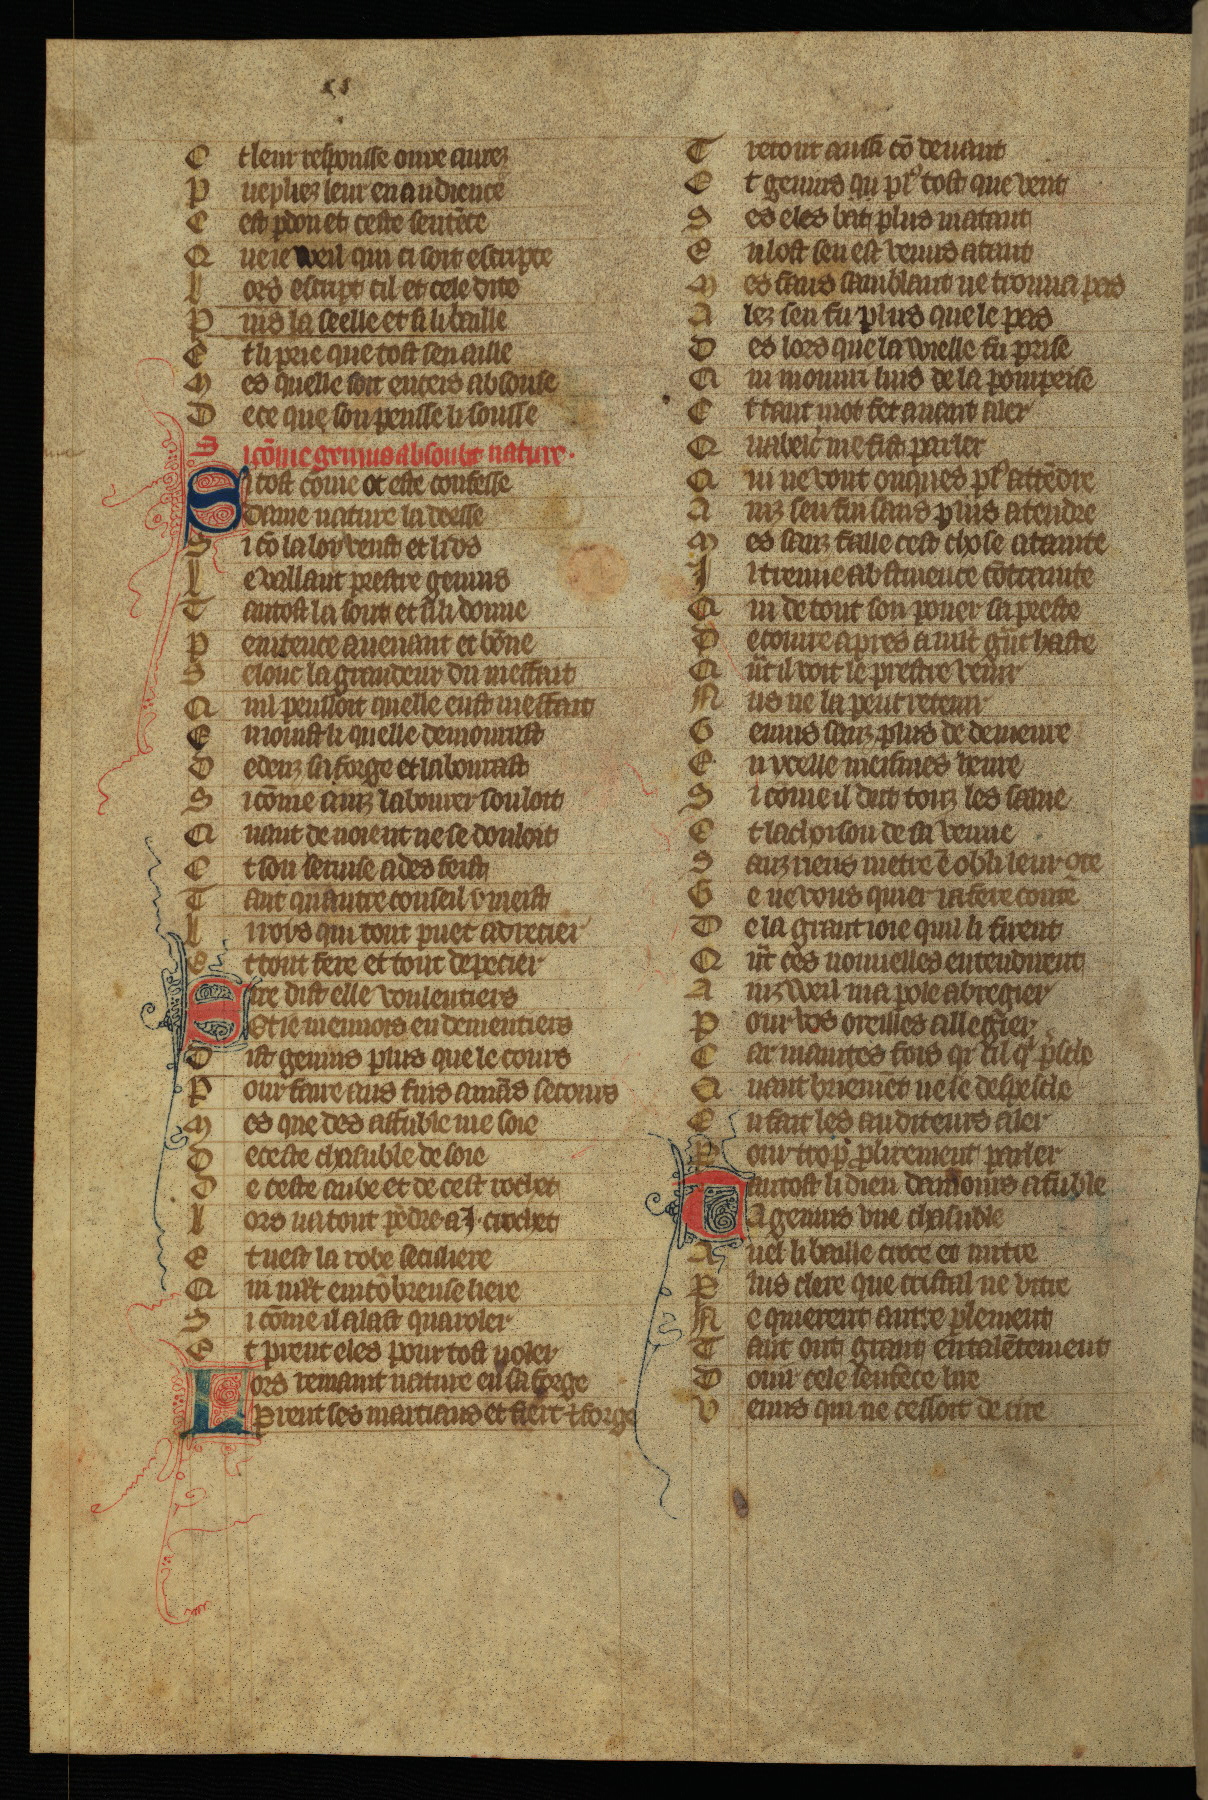 E t leur response orre aurez
P uepliez leur en audience
C est pdon et ceste sentēce
Q ue ie weil qui ci soit escripte
L ors escript cil et cele dite
P uis la seelle et si li baille
E t li prie que tost sen aille
M es quelle soit encois absouse
D ece que son pensse li sousse
S icōme genius absoubt nature.
S i tost cōme ot este confesse
Dame nature la deesse
S i cō la loy veust et li us
L e vaillant prestre genius
T antost la sout et si li donne
P enitence auenant et bōne
S elonc la grandeur du meffait
Q ui penssoit quelle eust meffait
E nioinst li quelle demourast
D edenz sa forge et labourast
S icōme ainz labourer souloit
Q uant de noient ne se douloit
E t son seruise ades feist
T ant quautre conseil y meist
L i roys qui tout puet adrecier
E t tout fere et tout depecier
Sire dist elle voulentiers
Et ie mennois en dementiers
D ist genius plus que le cours
P our faire aus fins amās secours
M es que des affuble me soie
D eceste chasuble de soie
D e ceste aube et de cest rochet
L ors ua tout pēdre a .i. crochet
E t uest la robe seculiere
Q ui mlt encōbreuse liere
S i cōme il alast quaroler
E t prent eles pour tost uoler
Lors remaint nature en sa forge
Prent ses martiaus et fiert et forge
T retout ausi cō deuant
E t genius qui pl' tost que vent
S es eles bat plus matant
E n lost sen est venus atant
M es faus samblant ne trouua pas
A lez sen fu plus que le pas
D es lors que la vieille fu prise
Q ui mouuri luis de la pomprise
E t tant mot fet auant aler
Q uabelc me fist parler
Q ui ne vout onques pl' attēdre
A inz senfui sanz plus atendre
M es sanz faille cest chose atainte
I l treuue abstinence cōtrainte
Q ui de tout son pouer sapreste
D e courre apres a mlt grāt haste
Q āt il voit le prestre venir
N us ne la peut retenir
G enius sanz plus de demeure
E n ycelle meismes heure
S i cōme il dut touz les salue
E t lachoison de sa venue
S anz riens metre ē obli leur cte
G e ne vous quier ia fere conte
D e la grant ioie quil li firent
Q āt ces nouuelles entendirent
A inz weil ma pole abregier
P our vos oreilles allegier
C ar maintes fois qr cil q' p̄sche
Q uant briemēt ne se despesche
E n fait les auditeurs aler
P our trop plirement parler
Tantost li dieu damours afuble
A genius vne chasuble
A nel li baille croce et mitre
P lus clere que cristal ne vitre
N e quierent autre plement
T ant ont grant entalētement
D ouir cele sentēce lire
V enus qui ne cessoit de rire